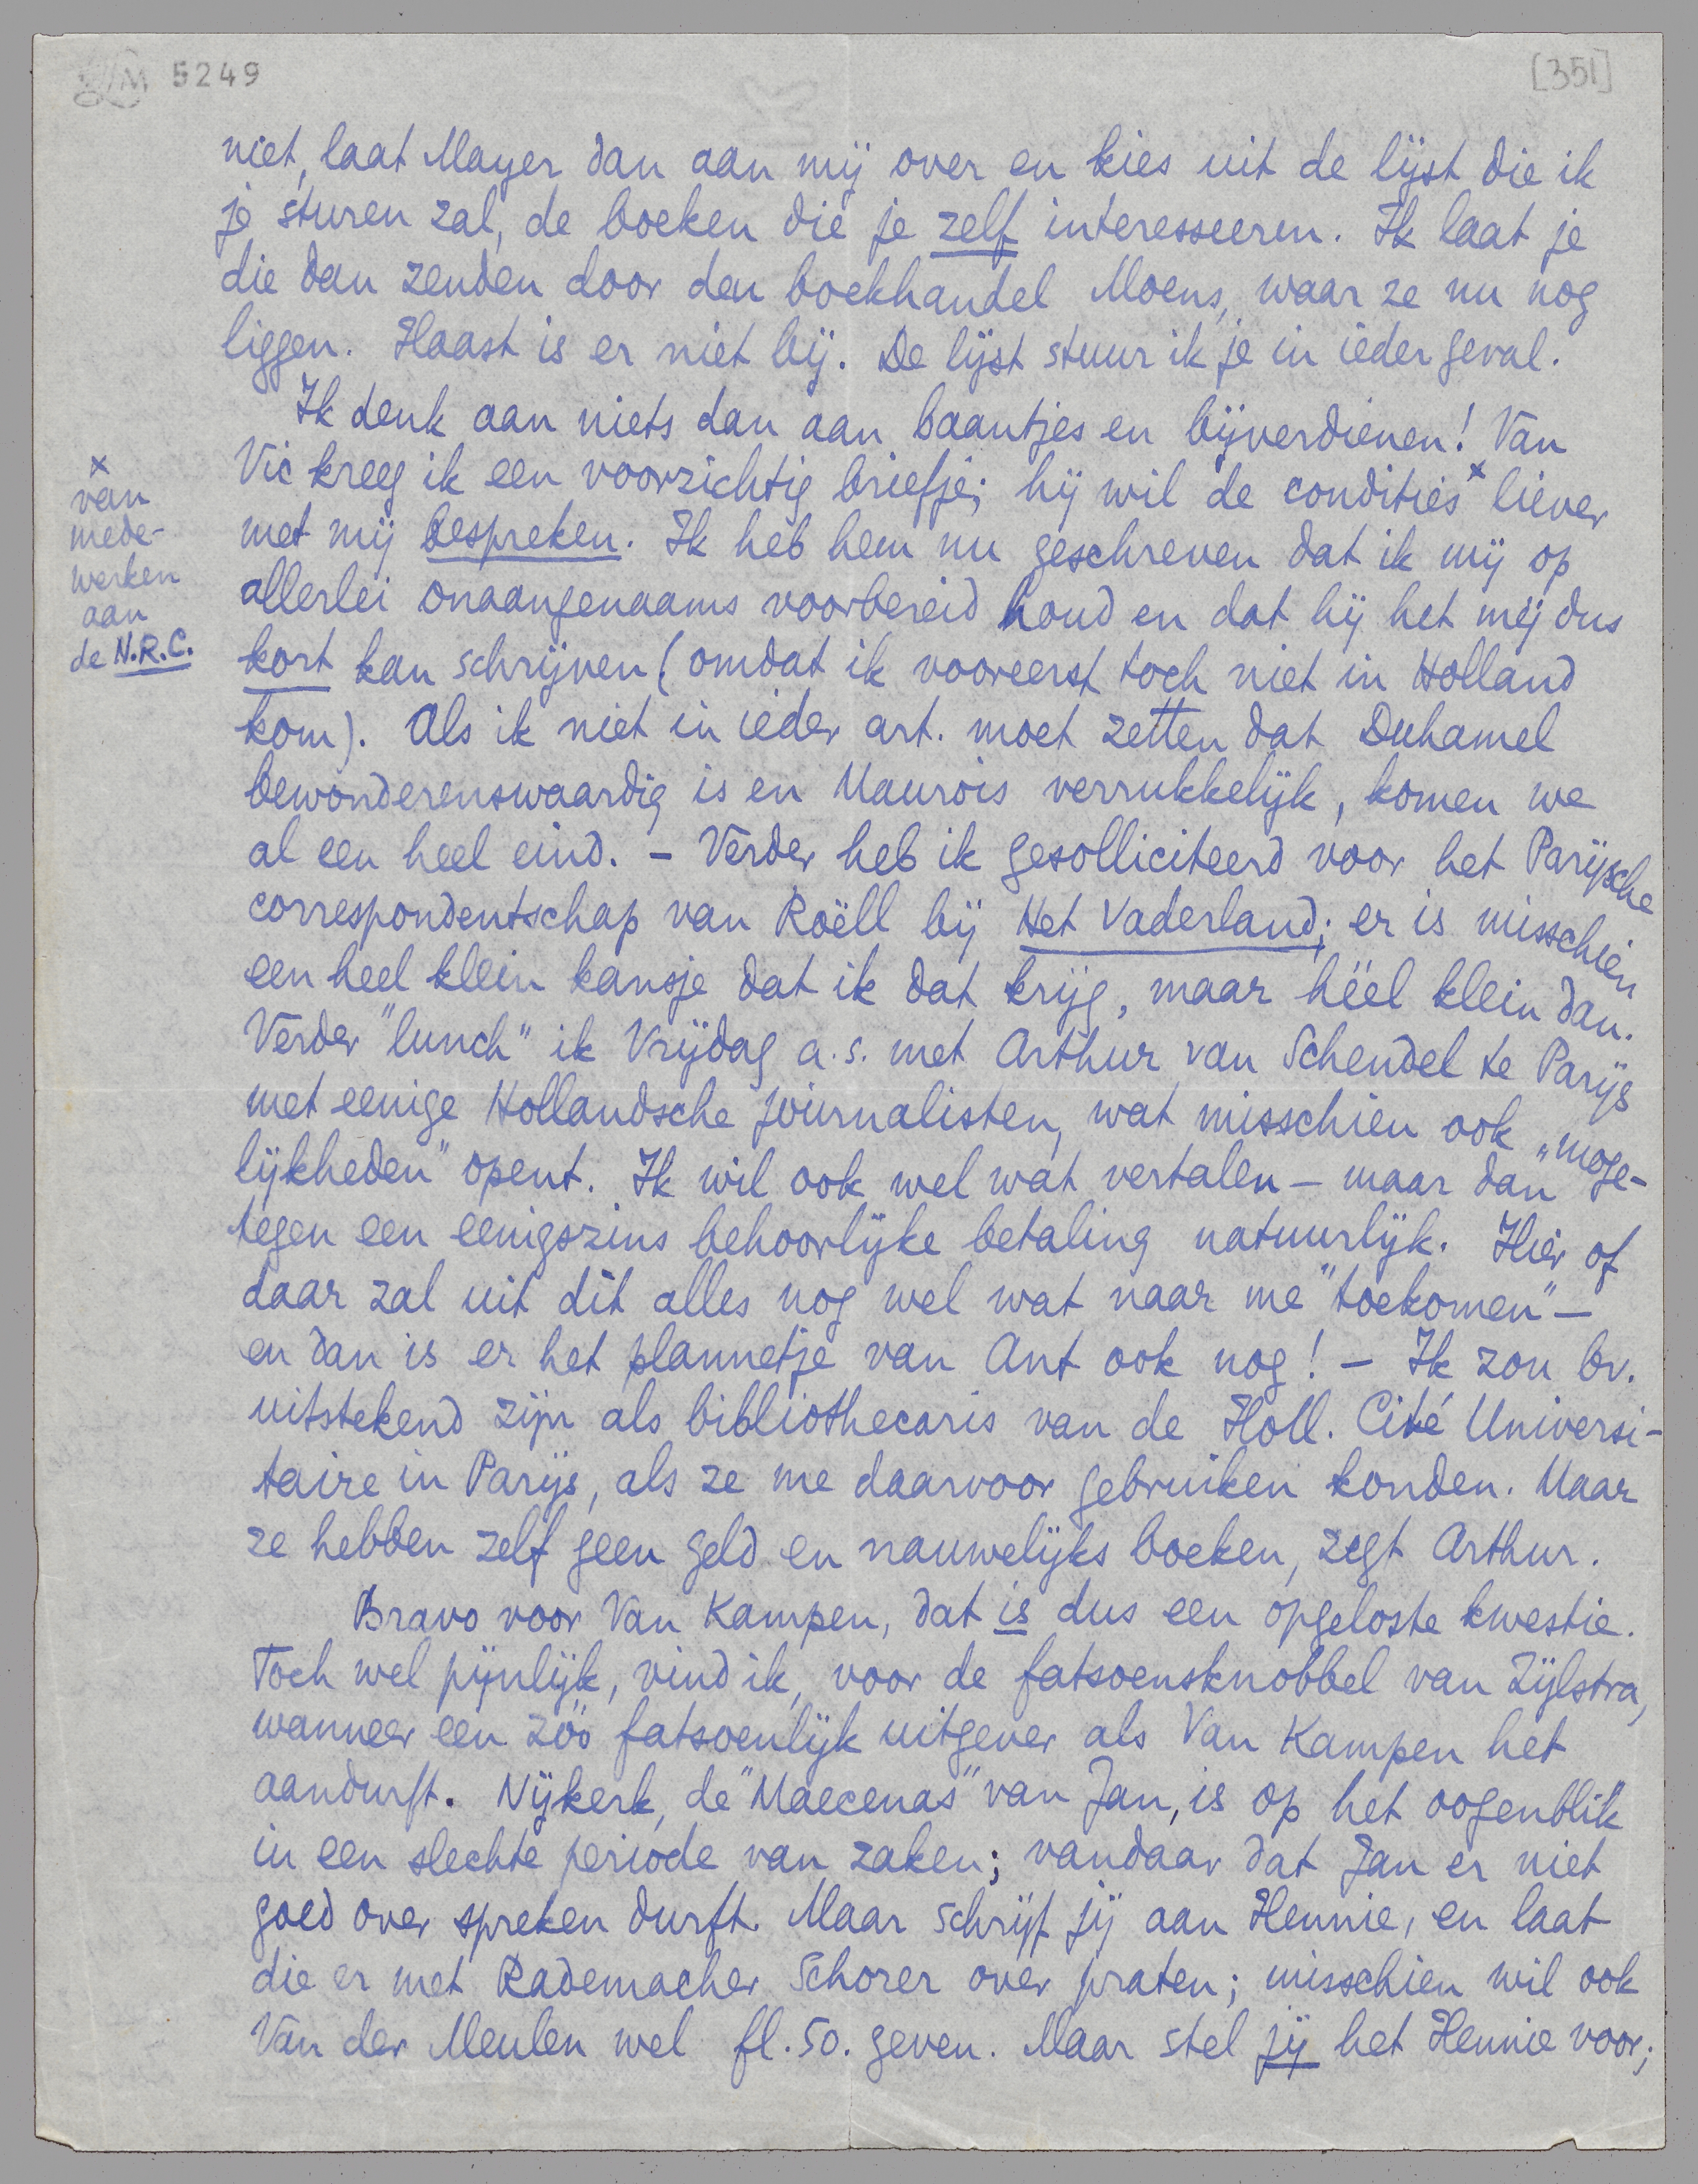 5249
[351]
niet, laat Mayer dan aan mij over en kies uit de lijst die ik
je sturen zal, de boeken die je zelf interesseeren. Ik laat je
die dan zenden door den boekhandel Moens, waar ze nu nog
liggen. Haast is er niet bij. De lijst stuur ik je in ieder geval.
Ik denk aan niets dan aan baantjes en bijverdienen! Van
Vic kreeg ik een voorzichtig briefje; hij wil de condities x liever
met mij bespreken. Ik heb hem nu geschreven dat ik mij op
allerlei onaangenaams voorbereid houd en dat hij het mij dus
kort kan schrijven (omdat ik vooreerst toch niet in Holland
kom). Als ik niet in ieder art. moet zetten dat Duhamel
bewonderenswaardig is en Maurois verrukkelijk, komen we
al een heel eind. – Verder heb ik gesolliciteerd voor het Parijsche
correspondentschap van Roëll bij Het Vaderland; er is misschien
een heel klein kansje dat ik dat krijg, maar héél klein dan.
Verder "lunch" ik Vrijdag a.s. met Arthur van Schendel te Parijs
met eenige Hollandsche journalisten, wat misschien ook „moge-
lijkheden" opent. Ik wil ook wel wat vertalen – maar dan
tegen een eenigszins behoorlijke betaling natuurlijk. Hier of
daar zal uit dit alles nog wel wat naar me "toekomen" –
en dan is er het plannetje van Ant ook nog! – Ik zou bv.
uitstekend zijn als bibliothecaris van de Holl. Cité Universi-
taire in Parijs, als ze me daarvoor gebruiken konden. Maar
ze hebben zelf geen geld en nauwelijks boeken, zegt Arthur.
Bravo voor Van Kampen, dat is dus een opgeloste kwestie.
Toch wel pijnlijk, vind ik, voor de fatsoensknobbel van Zijlstra,
wanneer een zóó fatsoenlijk uitgever als Van Kampen het
aandurft. Nijkerk, de "Maecenas" van Jan, is op het oogenblik
in een slechte periode van zaken; vandaar dat Jan er niet
goed over spreken durft. Maar schrijf jij aan Hennie, en laat
die er met Rademacher Schorer over praten; misschien wil ook
Van der Meulen wel fl. 50. geven. Maar stel jij het Hennie voor;
x
van
mede-
werken
aan
de N.R.C.